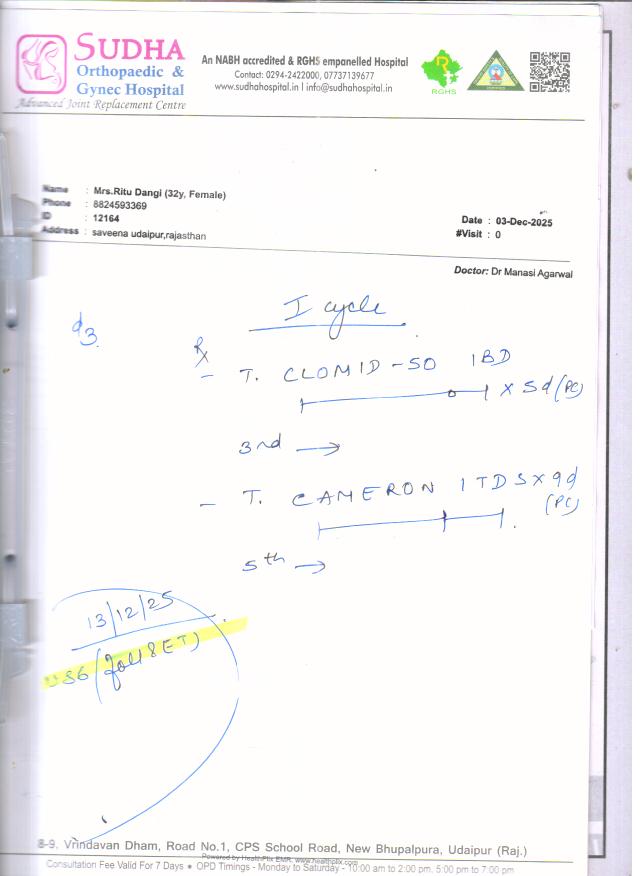 SUDHA
Orthopaedic &
Gynec Hospital
Advanced Joint Replacement Centre
An NABH accredited & RGHS empanelled Hospital
Contact: 0294-2422000, 07737139677
www.sudhahospital.in | info@sudhahospital.in
RGHS
Name : Mrs.Ritu Dangi (32y, Female)
Phone : 8824593369
ID : 12164
Address : saveena udaipur,rajasthan
Date : 03-Dec-2025
#Visit : 0
Doctor: Dr Manasi Agarwal
I cycle
d3
Rx
- T. CLOMID-50 1BD
x 5d (PC)
3rd →
- T. CAMERON 1 TDS x 9d
(PC)
5th →
13/12/25
USG (foll & ET)
8-9, Vrindavan Dham, Road No.1, CPS School Road, New Bhupalpura, Udaipur (Raj.)
Powered by HealthPlix EMR. www.healthplix.com
Consultation Fee Valid For 7 Days • OPD Timings - Monday to Saturday - 10:00 am to 2:00 pm. 5:00 pm to 7:00 pm